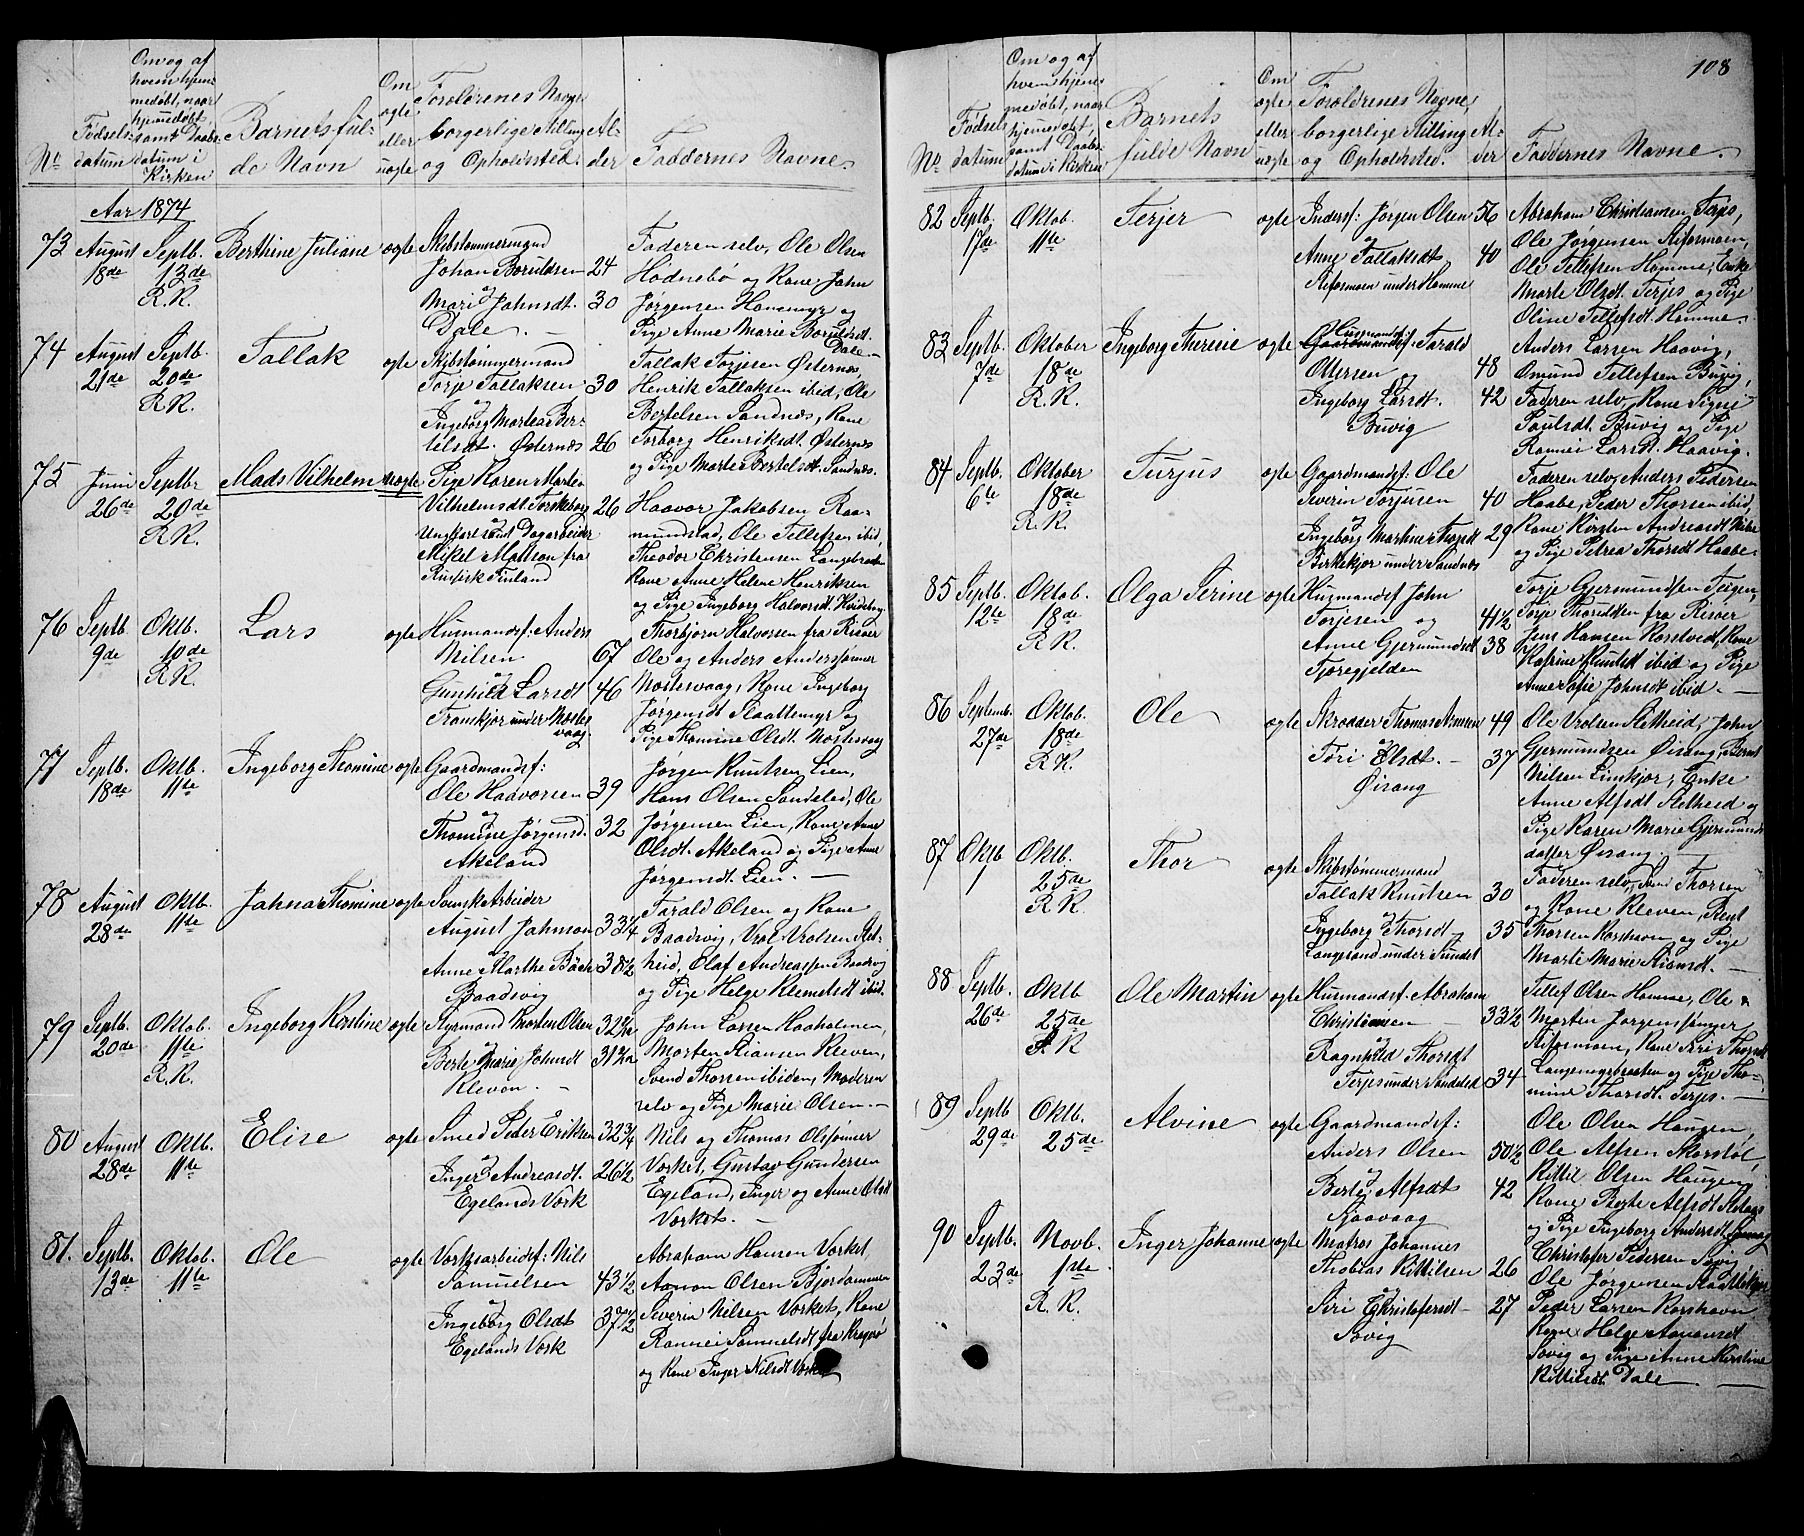 108
No
Fødsels-
datum
Om og af
hvem hjem-
medøbt, naar
hjemedøbt,
samt Daabs-
datum i
Kirken
Barnets ful-
de Navn
Om
ægte
eller
uægte
Forældrenes Navne
borgerlige Stilling
og Opholdsted.
Al-
der
Faddernes Navne.
Aar 1874
73 August 18de Septb. 13de R.K. Berthine Juliane ægte
Skibstømmermand
Johan Boruldsen 24
og
Mari Johnsdt. 30
Dale.
Faderen selv, Ole Olsen
Hødnebø og Kone John
Jørgensen Hanemyr og
Pige Anne Marie Boruldsdt.
Dale
74 August 21de Septb. 20de R.K. Tallak ægte
Skibstømmermand
Torje Tallaksen 30
og
Ingeborg Martea Ber-
telsdt. Østernæs 26
Tallak Torjesen Østernæs,
Henrik Tallaksen ibid, Ole
Bertelsen Sandnæs, Kone
Torborg Henriksdt. Østernæs
og Pige Marte Bertelsdt. Sandnæs.
75 Juni 26de Septbr 20de R.K. Mads Vilhelm uægte
Pige Karen Martea
Vilhelmsdt. 26
Ungkarl samt Dagarbeider
Mikel Madtson fra
Russisk Finland
Haavor Jakobsen Raa-
mundstad, Ole Tellefsen ibid,
Theodor Christensen
Kone Anne Helene Henriksen
og Pige Ingeborg Halvorsdt.
76 Septb. 9de Oktb. 10de R.K. Lars ægte
Husmandsf: Anders
Nilsen 67
og
Gunhild Larsdt 46
Tranekjær under Mostes
vaag
Thorbjørn Halvorsen fra Risøer
Ole og Anders Anderssønner
Mostesvaag, Kone Ingeborg
Jørgensdt Slaattemyr og
Pige Thomine Olsdt. Mostesvaag
77 Septb. 18de Oktb. 11te Ingeborg Thomine ægte
Gaardmandsf:
Ole Haavorsen 39
og
Thomine Jørgensd. 32
Akeland
Jørgen Knutsen Lien,
Hans Olsen Søndeled, Ole
Jørgensen Lien, Kone Anne
Olsdt. Akeland og Pige Anne
Jørgensdt. Lien.
78 August 28de Oktb. 11te Johna Thomine ægte
Svensk Arbeider
August Johnson 33¼
og
Anne Marthe Bäck 38½
Baadsvig
Tarald Olsen og Kone
Baadsvig, Vrol Vrolsen Slet-
heid, Olaf Andreassen Baadsvig
og Pige Helge Klemetsdt ibid.
79 Septb. 20de Oktob. 11te R.K. Ingeborg Kirstine ægte
Styrmand Morten Olsen
og
Berte Marie Johnsdt
Kleven.
John Larsen Haaholmen,
Morten Stiansen Kleven,
Svend Thorsen ibiden, Moderen
selv og Pige Marie Olsen.
80 August 28de Oktb. 11te Elise ægte
Smed Peder Eriksen 32¾
og
Inger Andreasdt. 26½
Egelands Værk
Nils og Thomas Olssønner
Værket, Gustav Gundersen
Egeland, Inger og Anne Olsdt
Værket.
81. Septb. 13de Oktob. 11te Ole ægte
Værksarbeidsf: Nils
Samuelsen 43½
og
Ingeborg Olsdt 37½
Egelands Værk
Abraham Hansen Værket,
Aanon Olsen Bjordammen
Severin Nilsen Værket, Kone
Rannei Samuelsdt fra Kragerø
og Kone Inger Nilsdt Værket
No
Fødsels
datum
Om og af
hvem hjem-
medøbt, naar
hjemmedøbt,
samt Daabs-
datum i Kirken
Barnets
fulde Navn
Om
ægte
eller
uægte
Forældrenes Navne,
borgerlige Stilling
og Opholdsted.
Al-
der
Faddernes Navne.
82 Septb. 17de Oktob. 11te Terjer ægte
Inderst: Jørgen Olsen 56
og
Anne Tallaksdt. 40
Stifsmoen under Hamme
Abraham Christiansen Terjes,
Ole Jørgensen Stifsmoen,
Ole Tellefsen Hamme, Enke
Marte Olsdt. Terjes og Pige
Oline Tellefsdt Hamme.
83 Septb. 7de Oktober 18de R.K. Ingeborg Therine ægte
Husmandsf: Tarald
Ottersen og 48
Ingeborg Larsdt. 42
Buvig
Anders Larsen Haavig,
Omund Tellefsen Buvig,
Faderen selv, Kone Signe
Poulsdt. Buvig og Pige
Rannei Larsdt. Haavig.
84 Septb. 6te Oktober 18de R.K. Terjus ægte
Gaardmandsf: Ole
Severin Torjusen 40
og
Ingeborg Martine Thorsdt 29
Birkekjær under Sandnæs
Faderen selv, Anders Pedersen
Haabe, Peder Thorsen ibid,
Kone Kirsten Andreasdt Vibe
og Pige Petrea Thorsdt Haabe
85 Septb. 12te Oktob. 18de R.K. Olga Serine ægte
Husmandsf John
Torjesen og 41½
Anne Gjermundsdt 38
Fjæregjelden
Torje Gjermundsen Teigen,
Torje Thorulden fra Risøer
Jens Hansen Rørstvedt, Kone
Katrine Knutsdt ibid og Pige
Anne Sofie Johnsdt ibid.
86 Septemb. 27de Oktob. 18de R.K. Ole ægte
Skrædder Thomas Asmsen 49
og
Tori Olsdt. 37
Øisang
Ole Vrolsen Sletheid, John
Gjermundsen Øisang, Bernt
Nilsen Limkjær, Enke
Anne Alfsdt Sletheid og
Pige Karen Marie Gjermunds
datter Øisang.
87 Oktb 1 Oktb. 25de R.K. Thor ægte
Skibstømmermand
Tallak Knutsen 30
og
Ingeborg Thorsdt 35
Langsand under Sundet
Faderen selv, Thorsen
og Kone Kleven, Bent
Thorsen Korshavn og Pige
Marte Marie Stiansdt.
88 Septb. 26de Oktb 25de R.K Ole Martin ægte
Husmandsf. Abraham
Christiansen 33½
og
Ragnhild Thorsdt
Terjes under Søndeled 34
Tellef Olsen Hamme, Ole &
Morten Jørgenssønner
Stifsmoen, Kone Siri Thorsdt
Langemyrbraaten og Pige Tho-
mine Thorsdt. Terjes.
89 Septb 29de Oktb. 25de Alvine ægte
Gaardmandsf:
Anders Olsen 50½
og
Berte Alfsdt 42
Sjaavaag
Ole Olsen Haugen,
Ole Alfsen Skorstøl,
Kittil Olsen Haugen,
Kone Berte Alfsdt
og Pige Ingeborg Andersdt
90 Septb. 23de Novb. 1ste R.K. Inger Johanne ægte
Matros Johannes
Thobias Kittilsen 26
og
Siri Christofersdt 27
Sivig
Christofer Pedersen Sivig
Ole Jørgensen
Peder Larsen Korshavn
Kone Helge Aanonsdt
Sivig og Pige Anne Kirstine
Kittilsdt. Dale